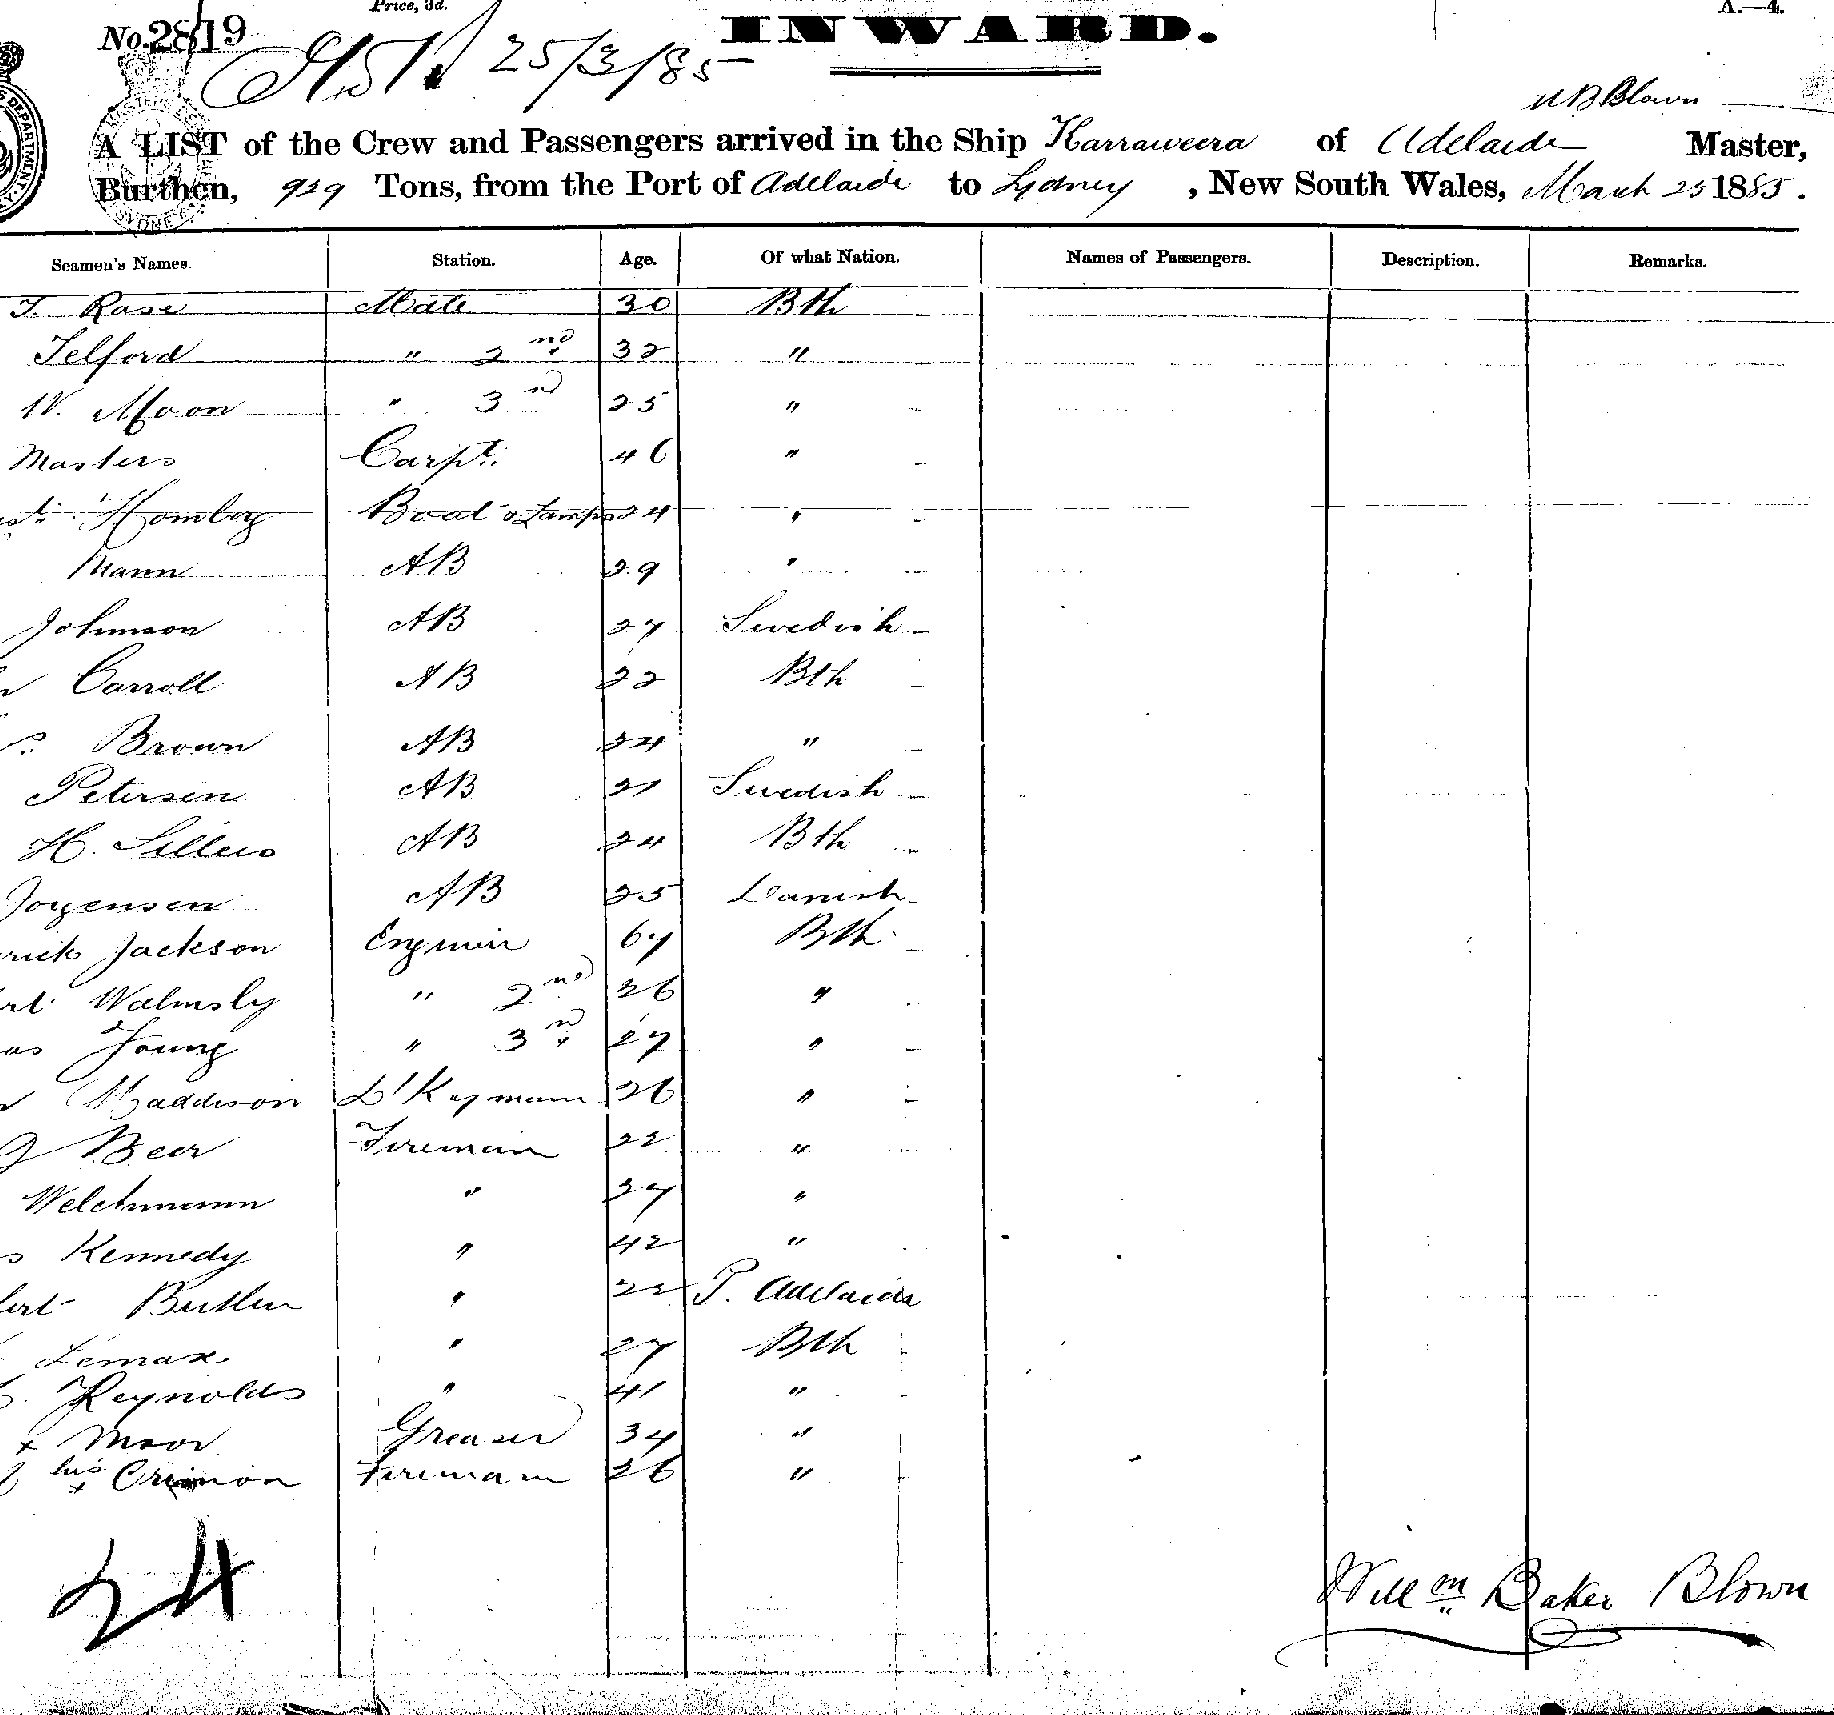 Price, 3d.
A.—4.
No. 2819
INWARD.
25/3/85
W B Blown
A LIST of the Crew and Passengers arrived in the Ship Karraweera of Adelaide Master,
Burthen, 929 Tons, from the Port of Adelaide to Sydney, New South Wales, March 25 1885.
Seamen's Names. Station. Age. Of what Nation. Names of Passengers. Description. Remarks.
T. Rose Mate 30 Bth
Telford " 2nd 32 "
W. Moon " 3rd 25 "
Masters Carpt. 46 "
Hornby Boat & Lamps 24 "
Mann AB 29 "
Johnson AB 27 Swedish
Carroll AB 22 Bth
Brown AB 24 "
Petersen AB 21 Swedish
H. Sillers AB 24 Bth
Jorgensen AB 25 Danish
rick Jackson Engineer 67 Bth
rt Walmsly " 2nd 36 "
as Young " 3rd 27 "
Maddison Dkeyman 26 "
Beer Fireman 22 "
Welchmann " 37 "
s Kennedy " 42 "
bert Butler " 22 P. Adelaide
Lemax " 27 Bth
Reynolds " 41 "
+ Moor Greaser 34 "
his + Crimon Fireman 26 "
24
Willm Baker Blown